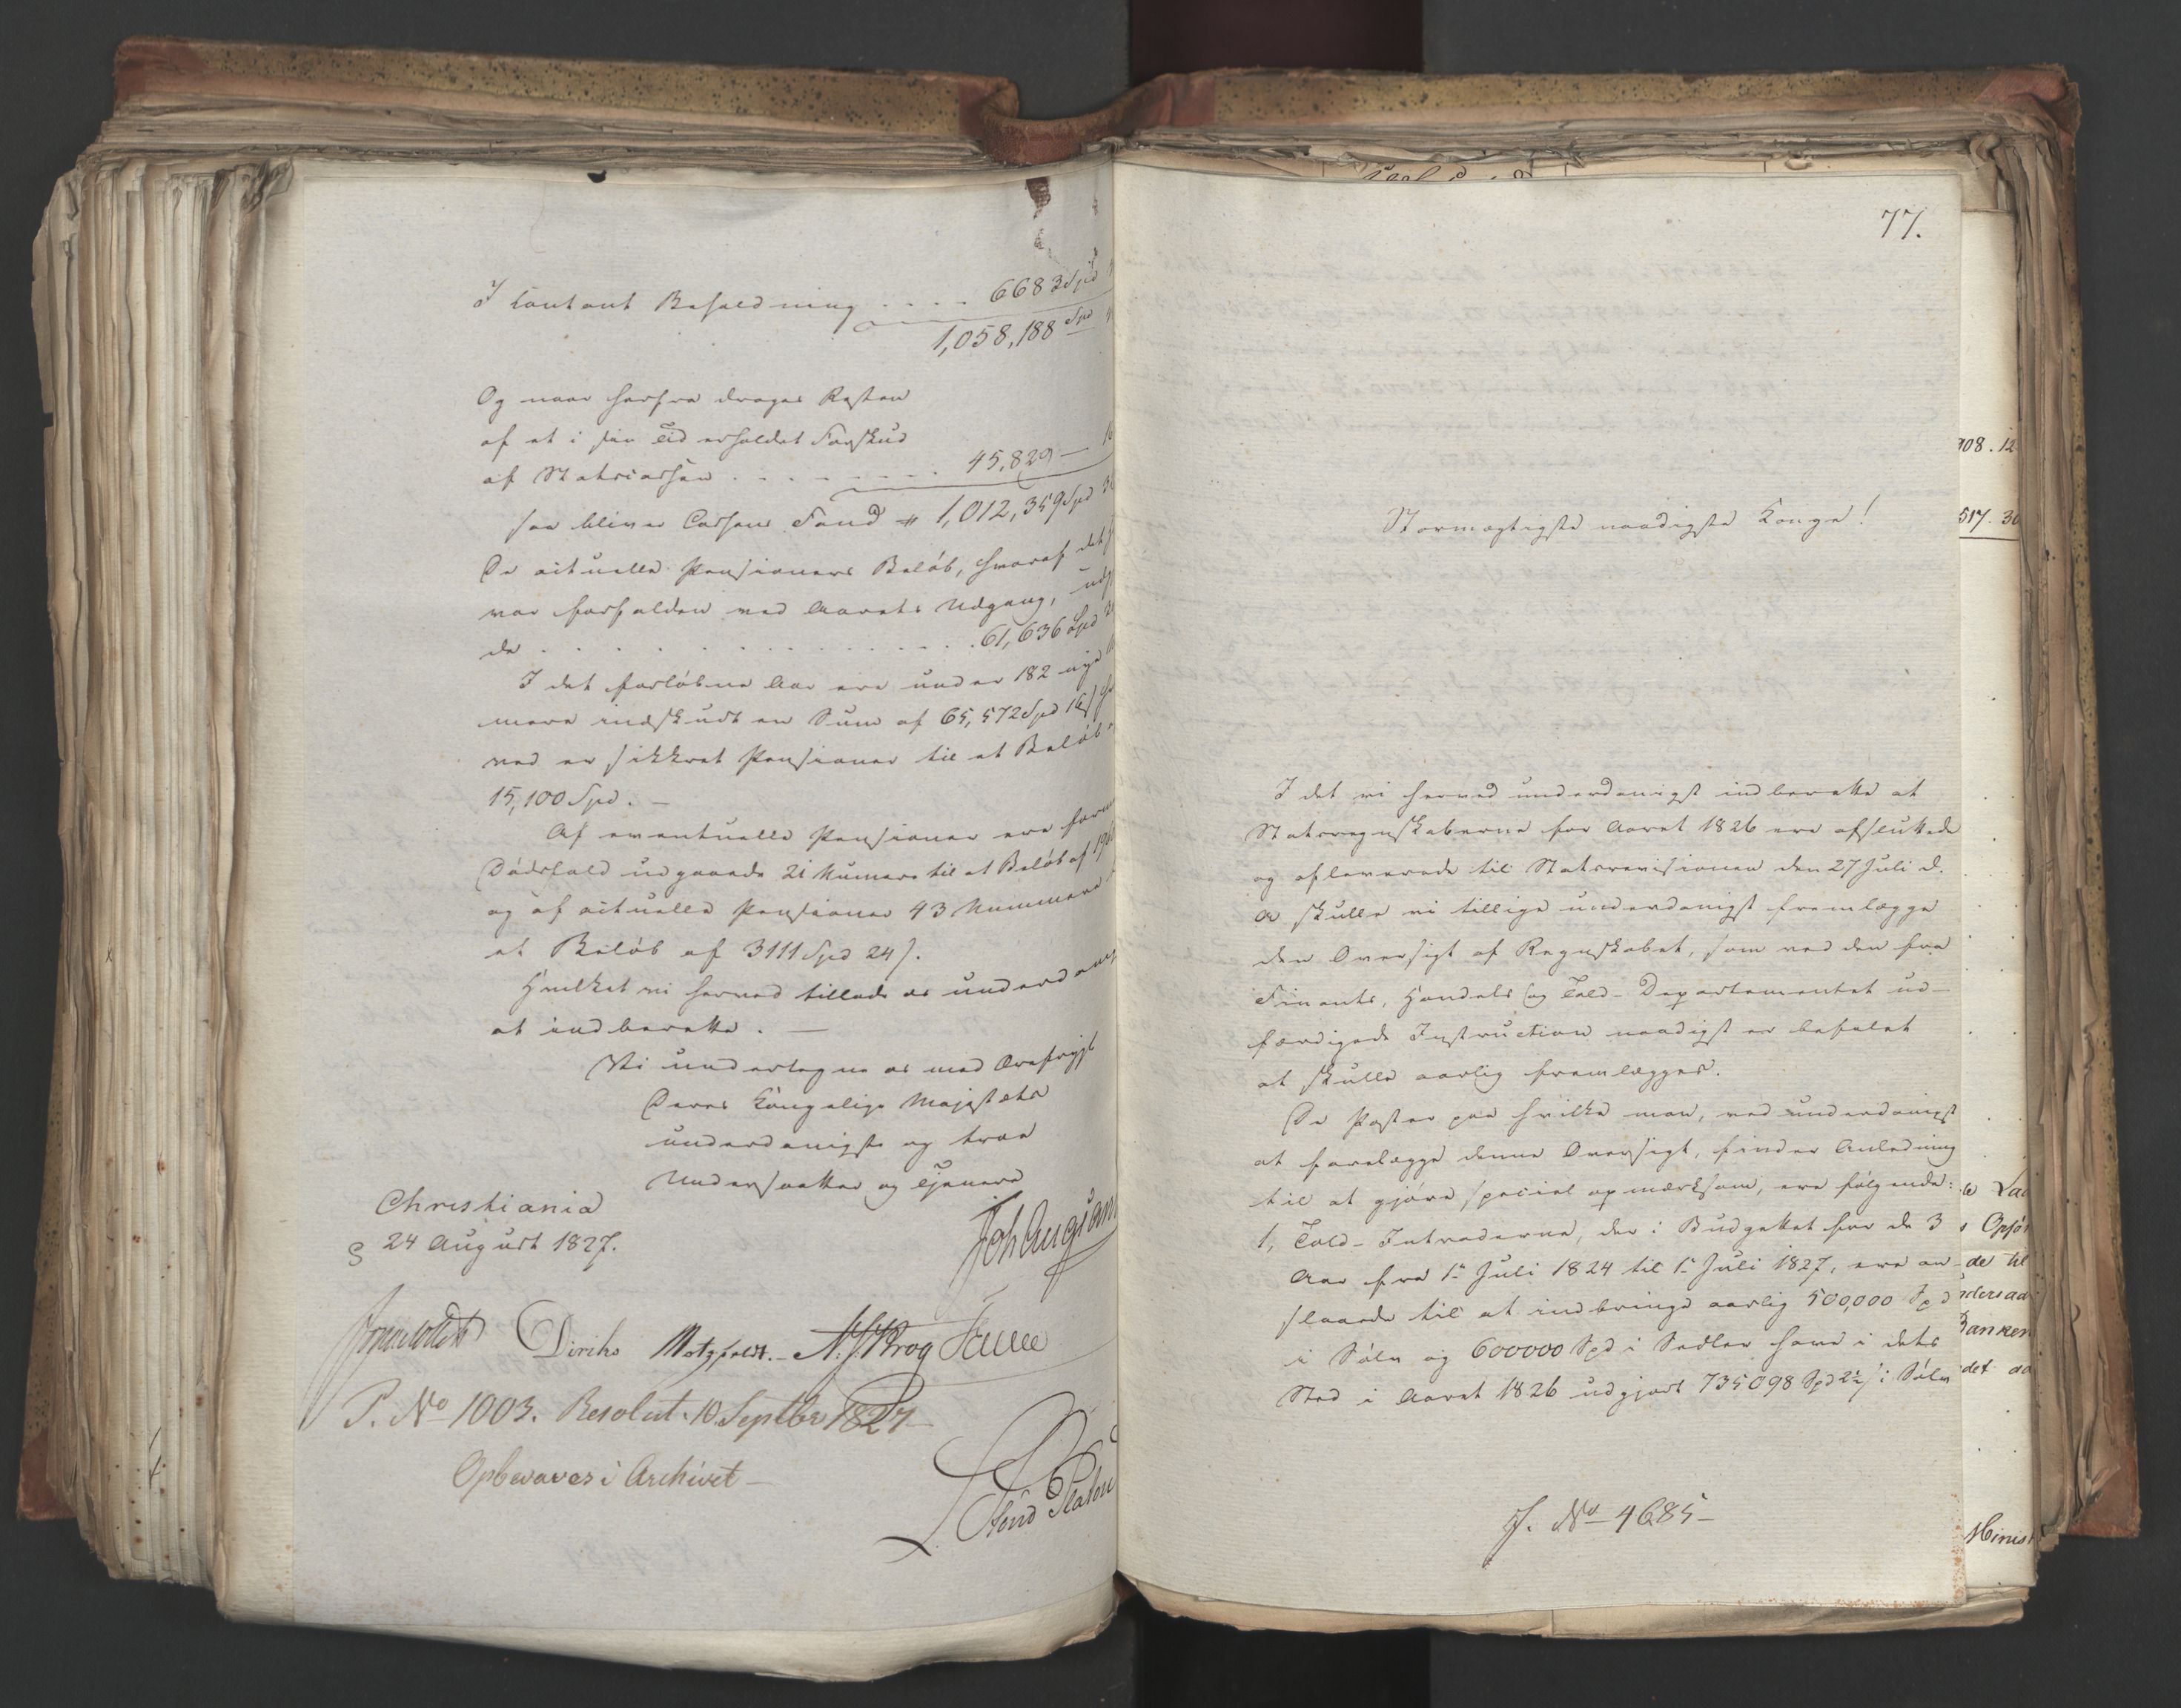 I Contant Beholdning . . . . 6683 Spd
1,058,188 Spd
Og naar herfra drages Resten
af et i sin Tid erholdet Forskud
af Statscassen . . . . . . . 45,829 —
saa bliver Cassens Fond 1,012,359 Spd
De actuelle Pensioners Beløb, hvoraf det
var forfalden ved Aarets Udgang,
de . . . . . . . . . . . . 61,636 Spd
I det forløbne Aar ere under 182 nye
mere indskudt en Sum af 65,572 Spd 16 s
ved er sikkret Pensioner til et Beløb
15,100 Spd. —
Af eventuelle Pensioner ere
Dødsfald udgaaede 21 Numere til et Beløb af
og af actuelle Pensioner 43 Nummere
et Beløb af 3111 Spd 24 s.
Hvilket vi herved tillade os
at indberette. —
Vi undertegne os med Ærefrygt
Deres Kongelige Majestæts
underdanigste og troe
Undersaatter og Tjenere
Christiania
24 August 1827.
Diriks Motzfeldt. — Krog
P. No 1003. Resolut. 10 Septbr 1827
Opbevares i Archivet —
77.
Stormægtigste naadigste Konge!
I det vi herved underdanigst indberette at
Statsregnskaberne for Aaret 1826 ere afsluttede
og afleverede til Statsrevisionen den 27 Juli d.
A skulle vi tillige underdanigst fremlægge
den Oversigt af Regnskabet, som ved den fra
Finants, Handels og Told-Departementet ud-
færdigede Instruction naadigst er befalet
at skulle aarlig fremlægges.
De Poster paa hvilke man, ved underdanigst
at forelægge denne Oversigt, finder Anledning
til at gjøre special opmærksom, ere følgende:
1, Told-Intraderne, der i Budgettet for de 3
Aar fra 1 Juli 1824 til 1 Juli 1827, ere an-
slaaede til at indbringe aarlig 500,000 Spd
i Sølv og 600000 Spd i Sedler have i dets
Sted i Aaret 1826 udgjort 735098 Spd 2½ s i Sølv
J. No 4685 —